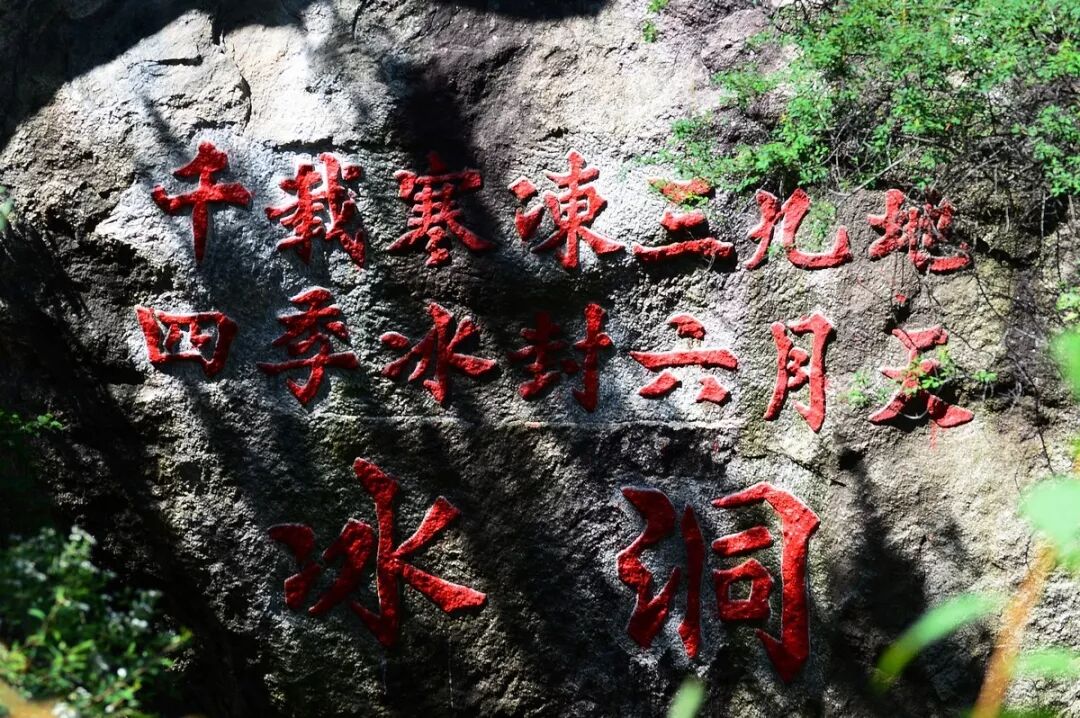 千载寒凍三九地
四季冰封六月天
冰洞